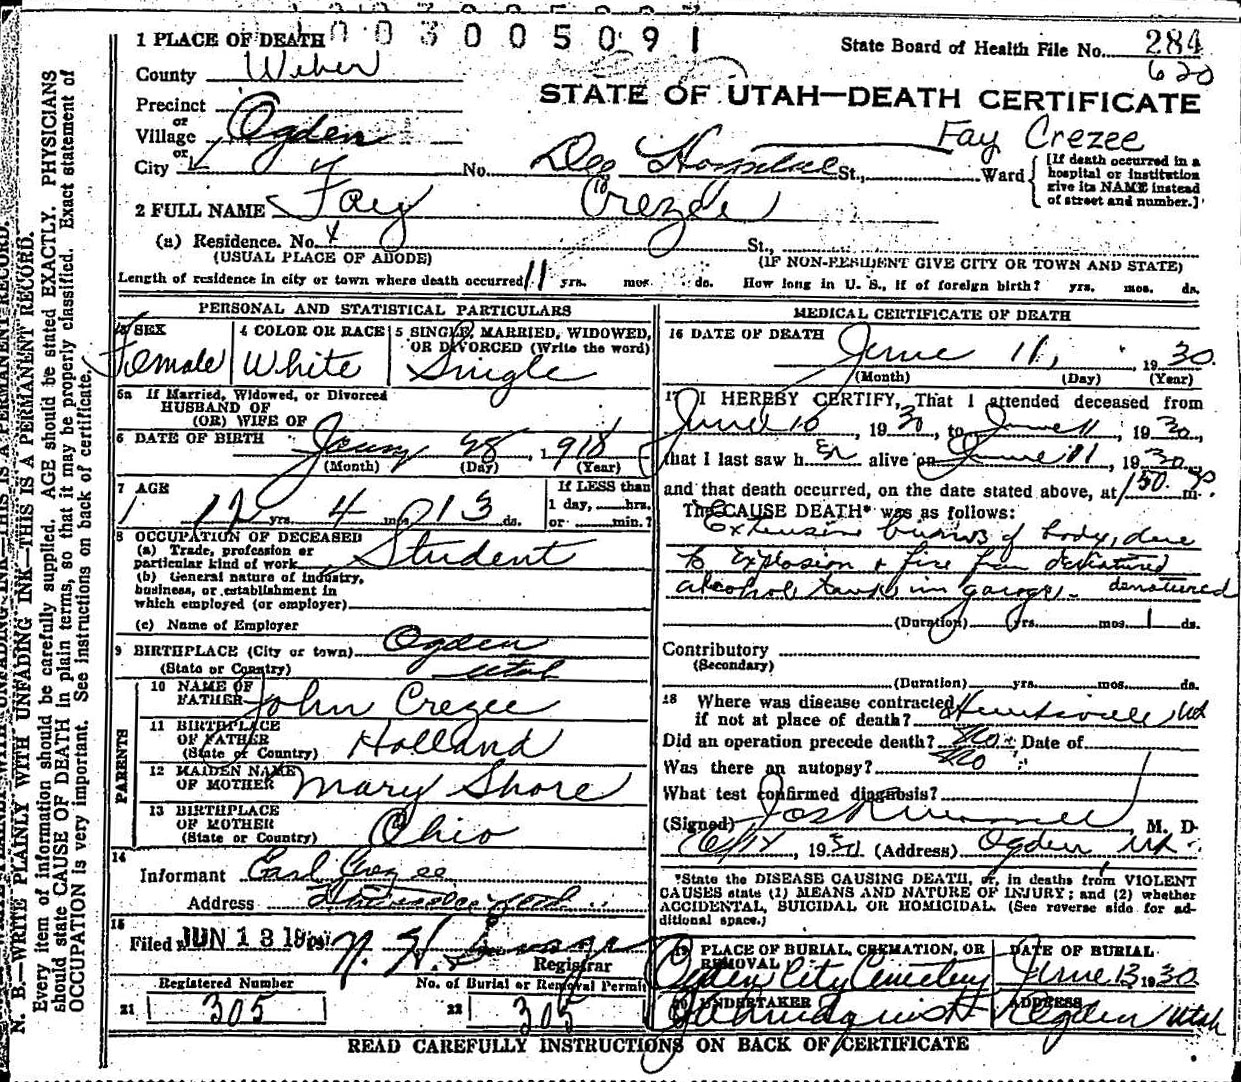 1003005091
1 PLACE OF DEATH
State Board of Health File No. 284
620
County Weber
STATE OF UTAH—DEATH CERTIFICATE
Precinct
or
Village Ogden
or
City
Fay Crezee
No. Dee Hospital St., Ward
[If death occurred in a
hospital or institution
give its NAME instead
of street and number.]
2 FULL NAME Fay Crezee
(a) Residence. No. St.,
(USUAL PLACE OF ABODE)
(IF NON-RESIDENT GIVE CITY OR TOWN AND STATE)
Length of residence in city or town where death occurred 11 yrs. mos. ds. How long in U. S., if of foreign birth? yrs. mos. ds.
PERSONAL AND STATISTICAL PARTICULARS
3 SEX
Female
4 COLOR OR RACE
White
5 SINGLE, MARRIED, WIDOWED,
OR DIVORCED (Write the word)
Single
5a If Married, Widowed, or Divorced
HUSBAND OF
(OR) WIFE OF
6 DATE OF BIRTH 28, 1918
(Month) (Day) (Year)
7 AGE
12 yrs. 4 mos. 13 ds.
If LESS than
1 day, hrs.
or min.?
8 OCCUPATION OF DECEASED
(a) Trade, profession or
particular kind of work Student
(b) General nature of industry,
business, or establishment in
which employed (or employer)
(c) Name of Employer
9 BIRTHPLACE (City or town) Ogden
(State or Country) Utah
PARENTS
10 NAME OF
FATHER John Crezee
11 BIRTHPLACE
OF FATHER
(State or Country) Holland
12 MAIDEN NAME
OF MOTHER Mary Shore
13 BIRTHPLACE
OF MOTHER
(State or Country) Ohio
14
Informant Earl Crezee
Address
15
Filed JUN 13 19
Registrar
Registered Number
21 305
No. of Burial or Removal Permit
22 305
MEDICAL CERTIFICATE OF DEATH
16 DATE OF DEATH June 11, 1930
(Month) (Day) (Year)
17 I HEREBY CERTIFY, That I attended deceased from
June 10, 1930, to June 11, 1930,
that I last saw her alive on June 11, 1930
and that death occurred, on the date stated above, at 150 m.
The CAUSE DEATH* was as follows:
Extensive burns of body, due
to explosion + fire from denatured
alcohol tank in garage - denatured
(Duration) yrs. mos. 1 ds.
Contributory
(Secondary)
(Duration) yrs. mos. ds.
18 Where was disease contracted
if not at place of death? Huntsville, Ut
Did an operation precede death? No Date of
Was there an autopsy? No
What test confirmed diagnosis?
(Signed) M. D.
6/12, 1930 (Address) Ogden, Ut.
*State the DISEASE CAUSING DEATH, or, in deaths from VIOLENT
CAUSES state (1) MEANS AND NATURE OF INJURY; and (2) whether
ACCIDENTAL, SUICIDAL OR HOMICIDAL. (See reverse side for ad-
ditional space.)
19 PLACE OF BURIAL, CREMATION, OR
REMOVAL
Ogden City Cemetery
DATE OF BURIAL
June 13 1930
20 UNDERTAKER
ADDRESS
Ogden Utah
READ CAREFULLY INSTRUCTIONS ON BACK OF CERTIFICATE
N. B.—WRITE PLAINLY WITH UNFADING INK—THIS IS A PERMANENT RECORD.
Every item of information should be carefully supplied. AGE should be stated EXACTLY. PHYSICIANS
should state CAUSE OF DEATH in plain terms, so that it may be properly classified. Exact statement of
OCCUPATION is very important. See instructions on back of certificate.